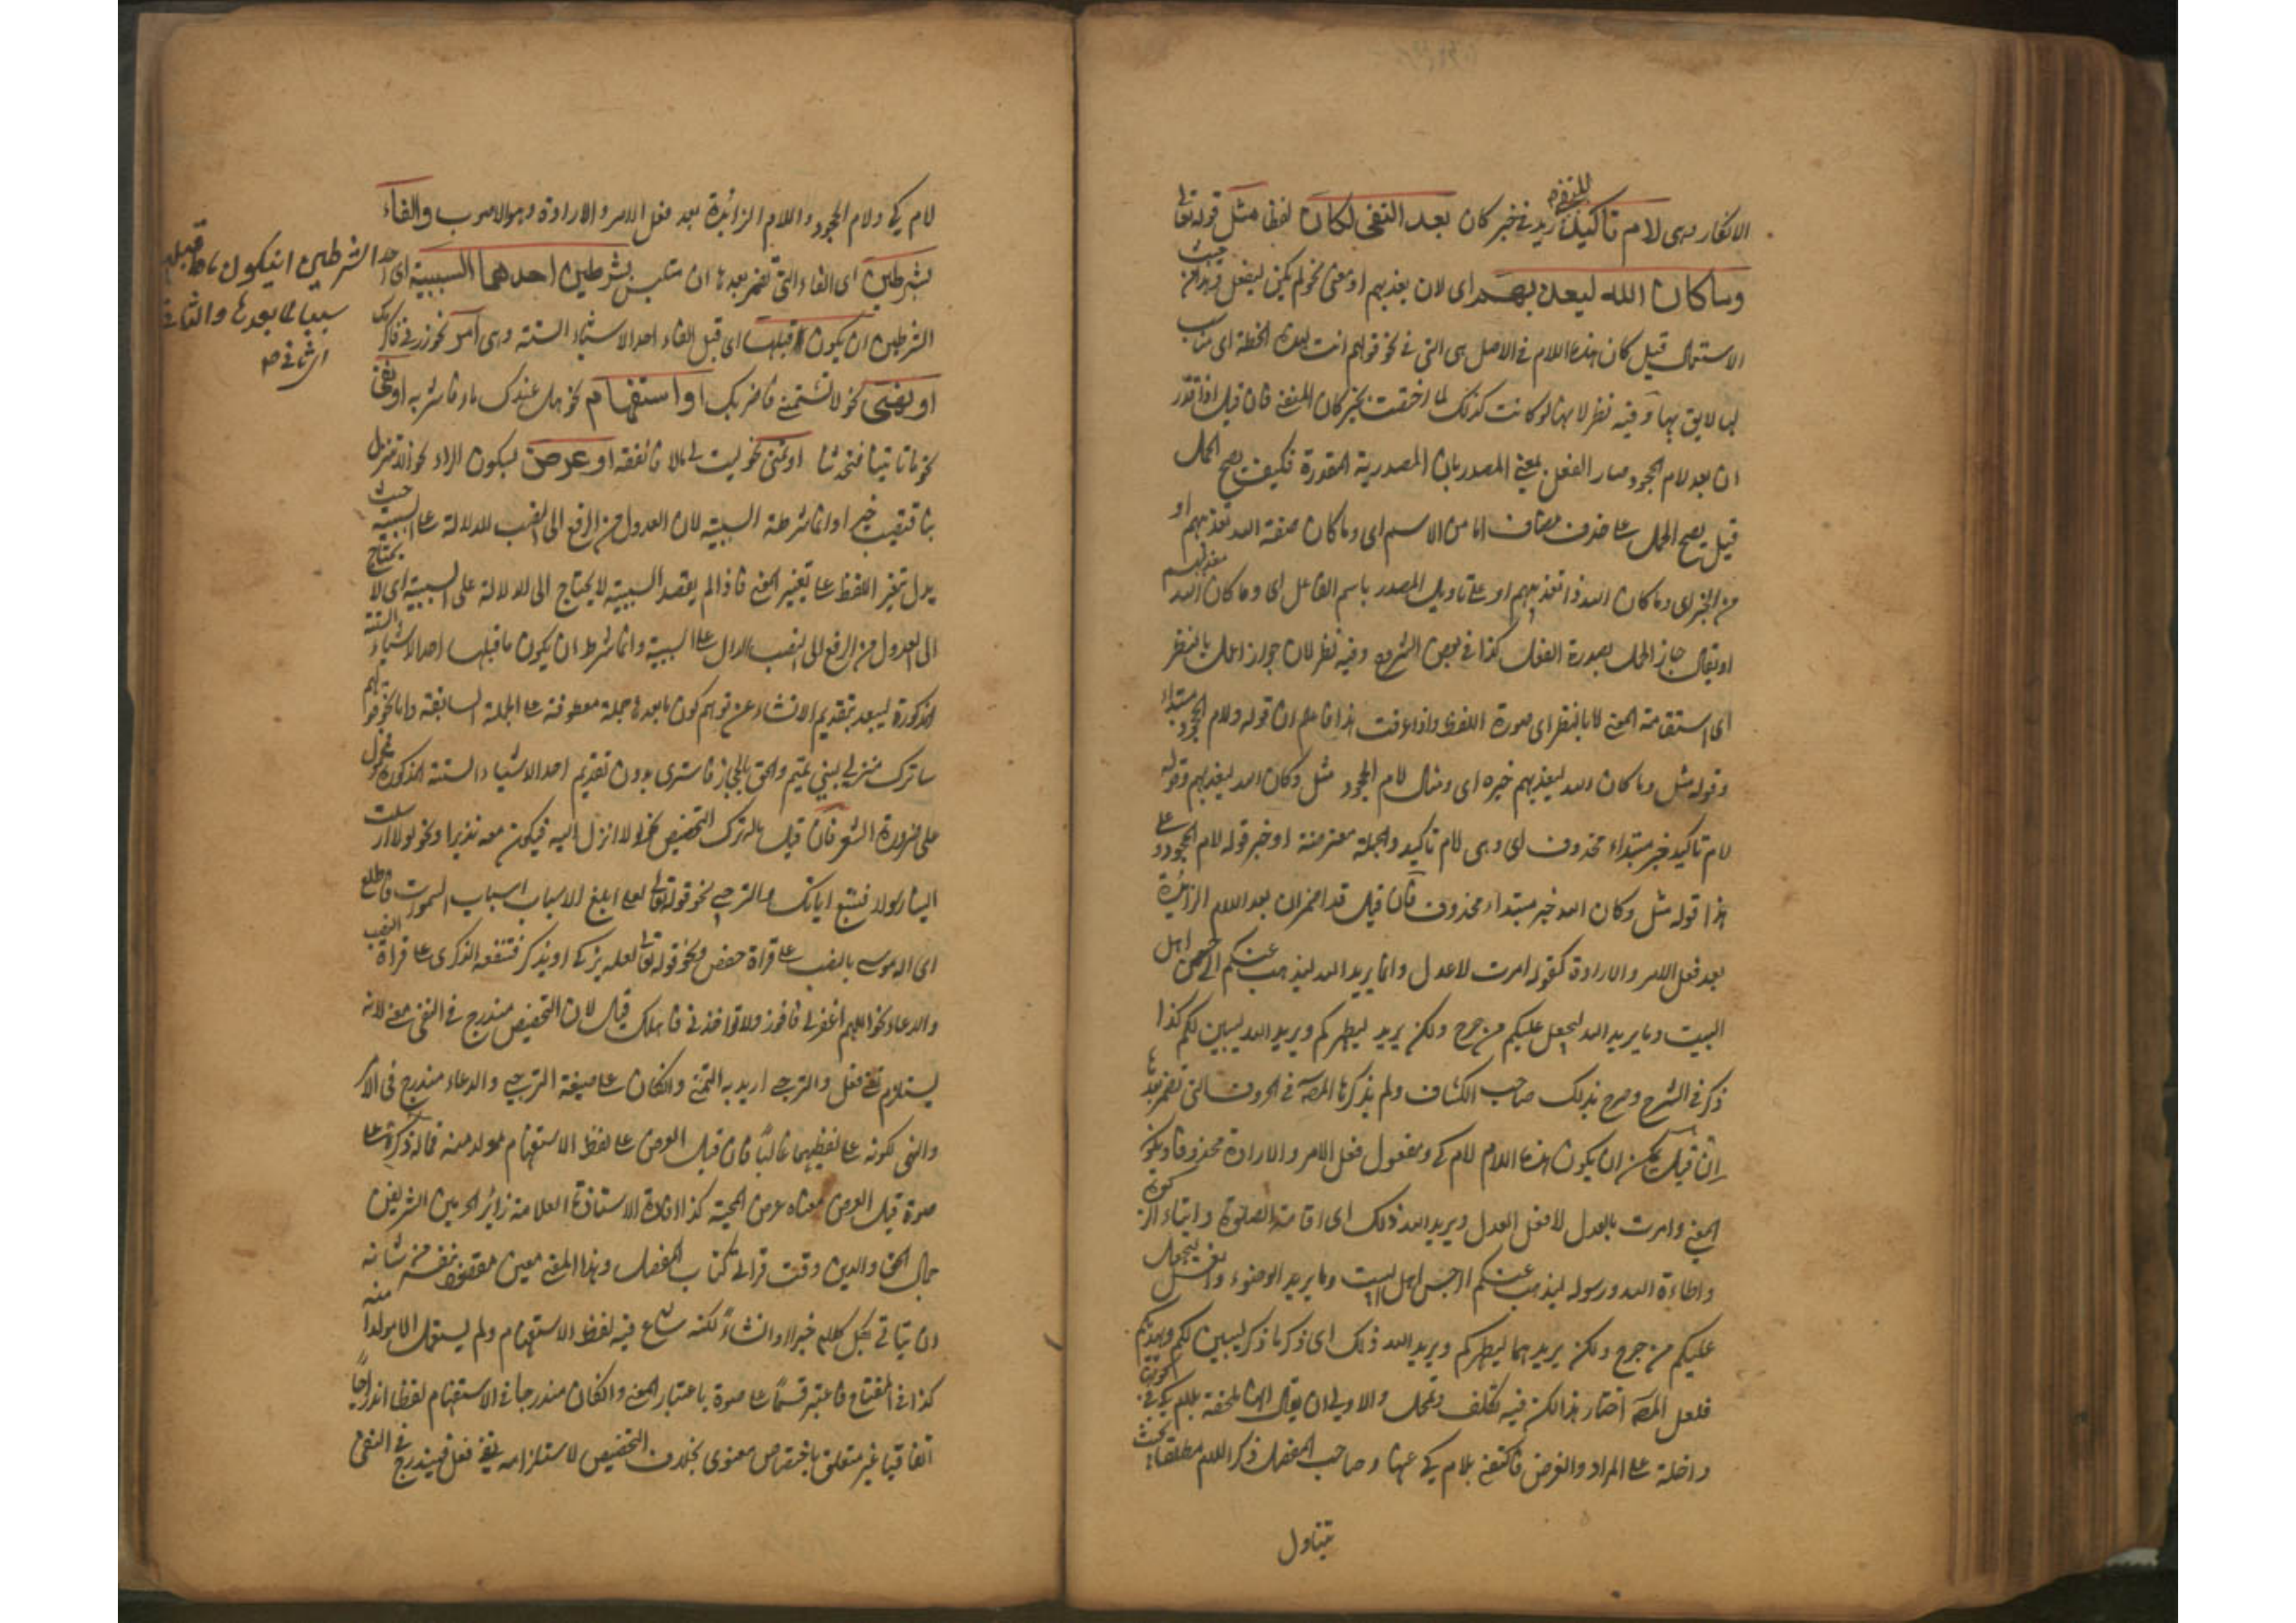 الانكار وهى لام تاكيد للنفى زيد فى خبر كان بعد النفى لكان لفظا مثل قوله تعالى
وما كان الله ليعذبهم اى لان يعذبهم او معنى نحو لم يكن ليفعل
الاستعمال قيل كان هذه اللام فى الاصل هى التى فى نحو قولهم انت لهذه الخطة اى مناسب
لها لايق بها وفيه نظر لانها لو كانت كذلك لما اختصت بخبر كان المنفى فان قيل اذا قدر
ان بعد لام الجحود صار الفعل بمعنى المصدر بان المصدرية المقدرة فكيف يصح الحمل
قيل يصح الحمل على حذف مضاف اما من الاسم اى وما كان صفة الله تعذيبهم او
من الخبر اى وما كان الله ذا تعذيبهم او على تاويل المصدر باسم الفاعل اى وما كان الله معذبهم
او يقال جاز الحمل بصورة الفعل كذا فى بعض الشروح وفيه نظر لان جواز الحمل بالنظر
الى استقامة المعنى لا بالنظر الى صورة اللفظ واذا عرفت هذا فاعلم ان قوله ولام الجحود مبتداء
وقوله مثل وما كان الله ليعذبهم خبره اى ومثال لام الجحود مثل وكان الله ليعذبهم وقوله
لام تاكيد خبر مبتداء محذوف اى وهى لام تاكيد والجملة معترضة او خبر قوله لام الجحود وعلى
هذا قوله مثل وكان الله خبر مبتداء محذوف فان قيل قد اضمر ان بعد اللام الزائدة
بعد فعل الامر والارادة كقوله امرت لاعدل وانما يريد الله ليذهب عنكم الرجس اهل
البيت وما يريد الله ليجعل عليكم من حرج ولكن يريد ليطهركم ويريد الله ليبين لكم كذا
ذكر فى الشرح وصرح بذلك صاحب الكشاف ولم يذكرها المصـ فى الحروف التى تضمر بعدها
ان قيل يمكن ان يكون هذه اللام لام كى ومفعول فعل الامر والارادة محذوفا ويكون
المعنى وامرت بالعدل لافعل العدل ويريد الله ذلك اى اقامة الصلوة وايتاء الزكوة
واطاعة الله ورسوله ليذهب عنكم الرجس اهل البيت وما يريد الوضوء والغسل ليجعل
عليكم من حرج ولكن يريدهما ليطهركم ويريد الله ذلك اى ذكر ما ذكر ليبين لكم
فلعل المصـ اختار هذا لكن فيه تكلف وتمحل والاولى ان يقال انها ملحقة بلام كى فى
داخلة على المراد والغرض فاكتفى بلام كى عنها وصاحب المفصل ذكر اللام مطلقا بحيث
يتناول
لام كى ولام الجحود واللام الزائدة بعد فعل الامر والارادة وهو الاصوب والفاء
بشرطين اى الفاء التى تضمر بعدها ان متلبس بشرطين احدهما السببية اى احد الشرطين ان يكون ما قبلها
سببا لما بعدها والثانى
اى ثانى
الشرطين ان يكون قبلها اى قبل الفاء احد الاشياء الستة وهى امر نحو زرنى فاكرمك
او نهى نحو لا تشتمنى فاضربك او استفهام نحو هل عندك ماء فاشربه او نفى
نحو ما تاتينا فتحدثنا او تمنى نحو ليت لى مالا فانفقه او عرض ليكون المراد نحو الا تنزل
بنا فتصيب خيرا وانما شرطت السببية لان العدول من الرفع الى النصب للدلالة على السببية حيث
يدل تغير اللفظ على تغيير المعنى فاذا لم يقصد السببية لا يحتاج الى الدلالة على السببية اى لا يحتاج
الى العدول من الرفع الى النصب الدال على السببية وانما شرط ان يكون ما قبلها احد الاشياء الستة
المذكورة ليبعد بتقديم الانشاء عن توهم كون ما بعدها جملة معطوفة على الجملة السابقة واما نحو قولهم
ساترك منزلى لبنى تميم والحق بالحجاز فاستريحا بدون تقديم احد الاشياء الستة المذكورة محمول
على ضرورة الشعر فان قيل ما باله ترك التحضيض نحو لولا انزل اليه فيكون معه نذيرا ونحو لولا ارسلت
الينا رسولا فنتبع اياتك والترجى نحو قوله تعالى لعلى ابلغ الاسباب اسباب السموت فاطلع
الى اله موسى بالنصب على قراة حفص ونحو قوله تعالى لعله يزكى او يذكر فتنفعه الذكرى على قراة النصب
والدعاء نحو اللهم اغفر لى فافوز ولا تواخذنى فاهلك قيل لان التحضيض مندرج فى النفى معنى لانه
يستلزم نفى فعل والترجى اريد به التمنى والكان على صيغة الترجى والدعاء مندرج فى الامر
والنهى لكونه على لفظهما غالبا فان قيل العرض على لفظ الاستفهام مولد منه فما له ذكره على
حدة قيل العرض معناه عرض المحبة كذا افاده الاستاذنا العلامة زائر الحرمين الشريفين
جمال الحق والدين وقت قراتى كتاب المفصل وهذا المعنى معين مقصود بنفسه من شانه
ان يتاتى بكل كلام خبرا او انشاء لكنه شاع فيه لفظ الاستفهام ولم يستعمل الا مولدا منه
كذا فى المفتاح فاعتبر قسما على حدة باعتبار المعنى والكان مندرجا فى الاستفهام لفظا اندراجا
اتفاقيا غير متعلق باختصاص معنوى بخلاف التحضيض لاستلزامه نفى فعل فيندرج فى النفى